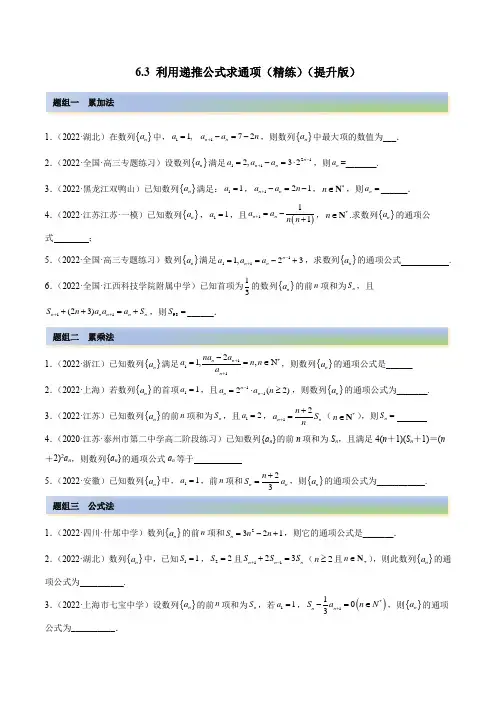 6.3 利用递推公式求通项（精练）（提升版）
题组一 累加法
1．（2022·湖北）在数列{aₙ}中，a₁=1, aₙ₊₁−aₙ=7−2n，则数列{aₙ}中最大项的数值为___．
2．（2022·全国·高三专题练习）设数列{aₙ}满足a₁=2,aₙ₊₁−aₙ=3·2²ⁿ⁻¹，则aₙ=_______.
3．（2022·黑龙江双鸭山）已知数列{aₙ}满足：a₁=1，aₙ₊₁−aₙ=2n−1，n∈N*，则aₙ=______．
4．（2022·江苏江苏·一模）已知数列{aₙ}，a₁=1，且aₙ₊₁=aₙ−1/(n(n+1))，n∈N*.求数列{aₙ}的通项公
式________；
5．（2022·全国·高三专题练习）数列{aₙ}满足a₁=1,aₙ₊₁=aₙ−2ⁿ⁻¹+3，求数列{aₙ}的通项公式__________.
6．（2022·全国·江西科技学院附属中学）已知首项为1/3的数列{aₙ}的前n项和为Sₙ，且
Sₙ₊₁+(2n+3)aₙaₙ₊₁=aₙ+Sₙ，则S₉₈=______．
题组二 累乘法
1．（2022·浙江）已知数列{aₙ}满足a₁=1,(naₙ−2aₙ₊₁)/aₙ₊₁=n,n∈N*，则数列{aₙ}的通项公式是______
2．（2022·上海）若数列{aₙ}的首项a₁=1，且aₙ=2ⁿ⁻¹·aₙ₋₁(n≥2)，则数列{aₙ}的通项公式为_______．
3．（2022·江苏）已知数列{aₙ}的前n项和为Sₙ，且a₁=2，aₙ₊₁=(n+2)/n Sₙ（n∈N*），则Sₙ=______
4．（2020·江苏·泰州市第二中学高二阶段练习）已知数列{aₙ}的前n项和为Sₙ，且满足4(n＋1)(Sₙ＋1)＝(n
＋2)²aₙ，则数列{aₙ}的通项公式aₙ等于__________
5．（2022·安徽）已知数列{aₙ}中，a₁=1，前n项和Sₙ=(n+2)/3 aₙ，则{aₙ}的通项公式为____________.
题组三 公式法
1．（2022·四川·什邡中学）数列{aₙ}的前n项和Sₙ=3n²−2n+1，则它的通项公式是_______．
2．（2022·湖北）数列{aₙ}中，已知S₁=1，S₂=2且Sₙ₊₁+2Sₙ₋₁=3Sₙ（n≥2且n∈N₊），则此数列{aₙ}的通
项公式为__________.
3．（2022·上海市七宝中学）设数列{aₙ}的前n项和为Sₙ，若a₁=1，Sₙ−1/3 aₙ₊₁=0(n∈N*)，则{aₙ}的通项
公式为__________．